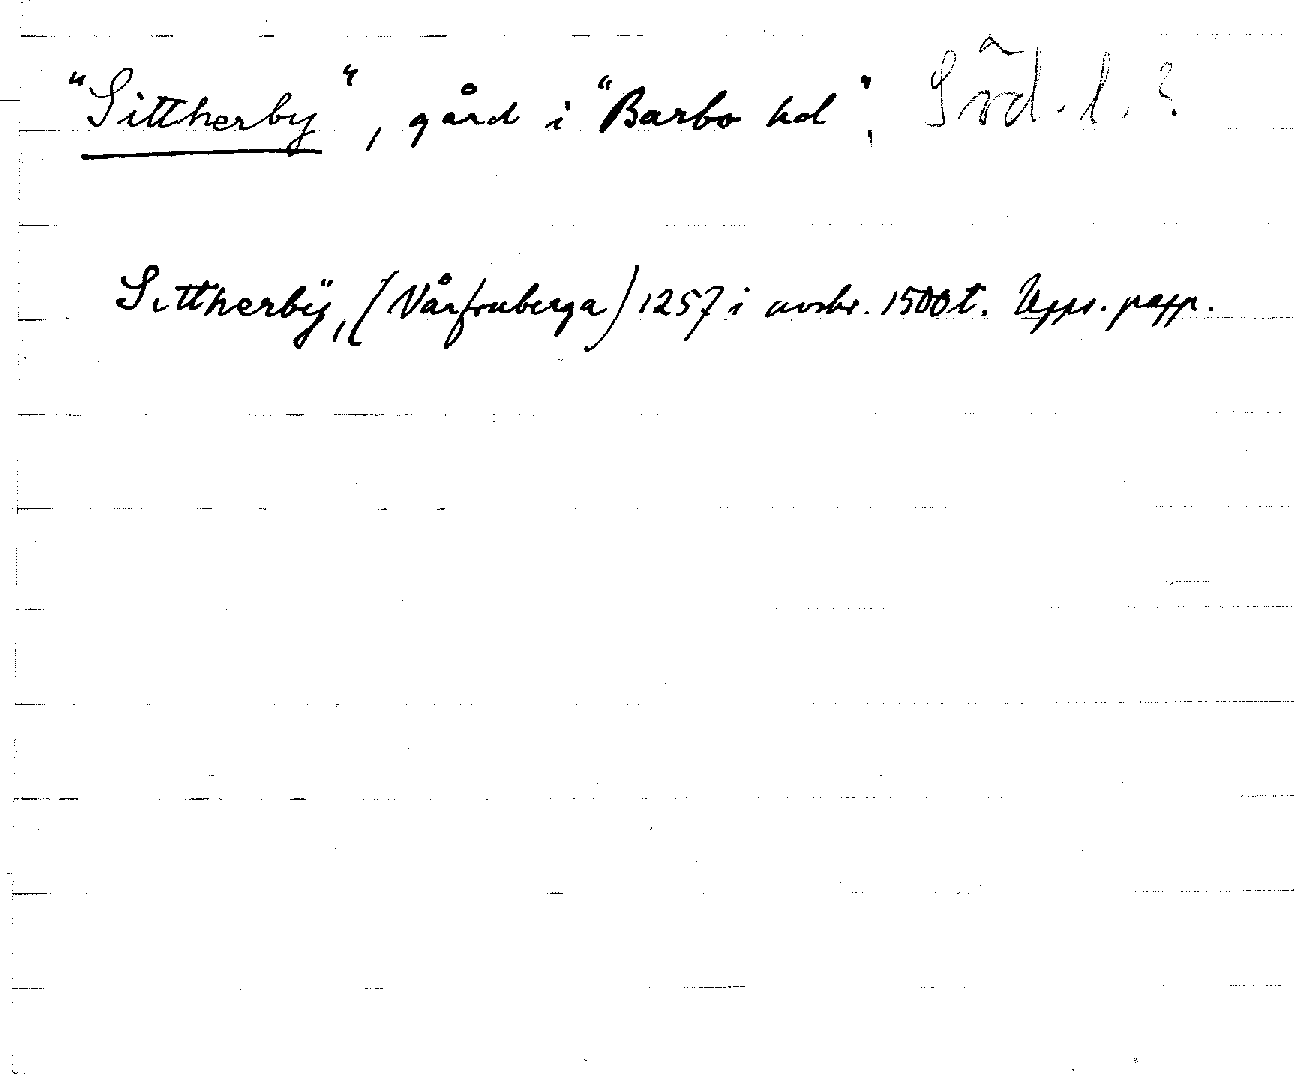 "Sittherby", gård i "Barbo hd", Söd. l.?
Sittherbÿ, (Vårfruberga) 1257 i avskr. 1500t. Upps. papp.